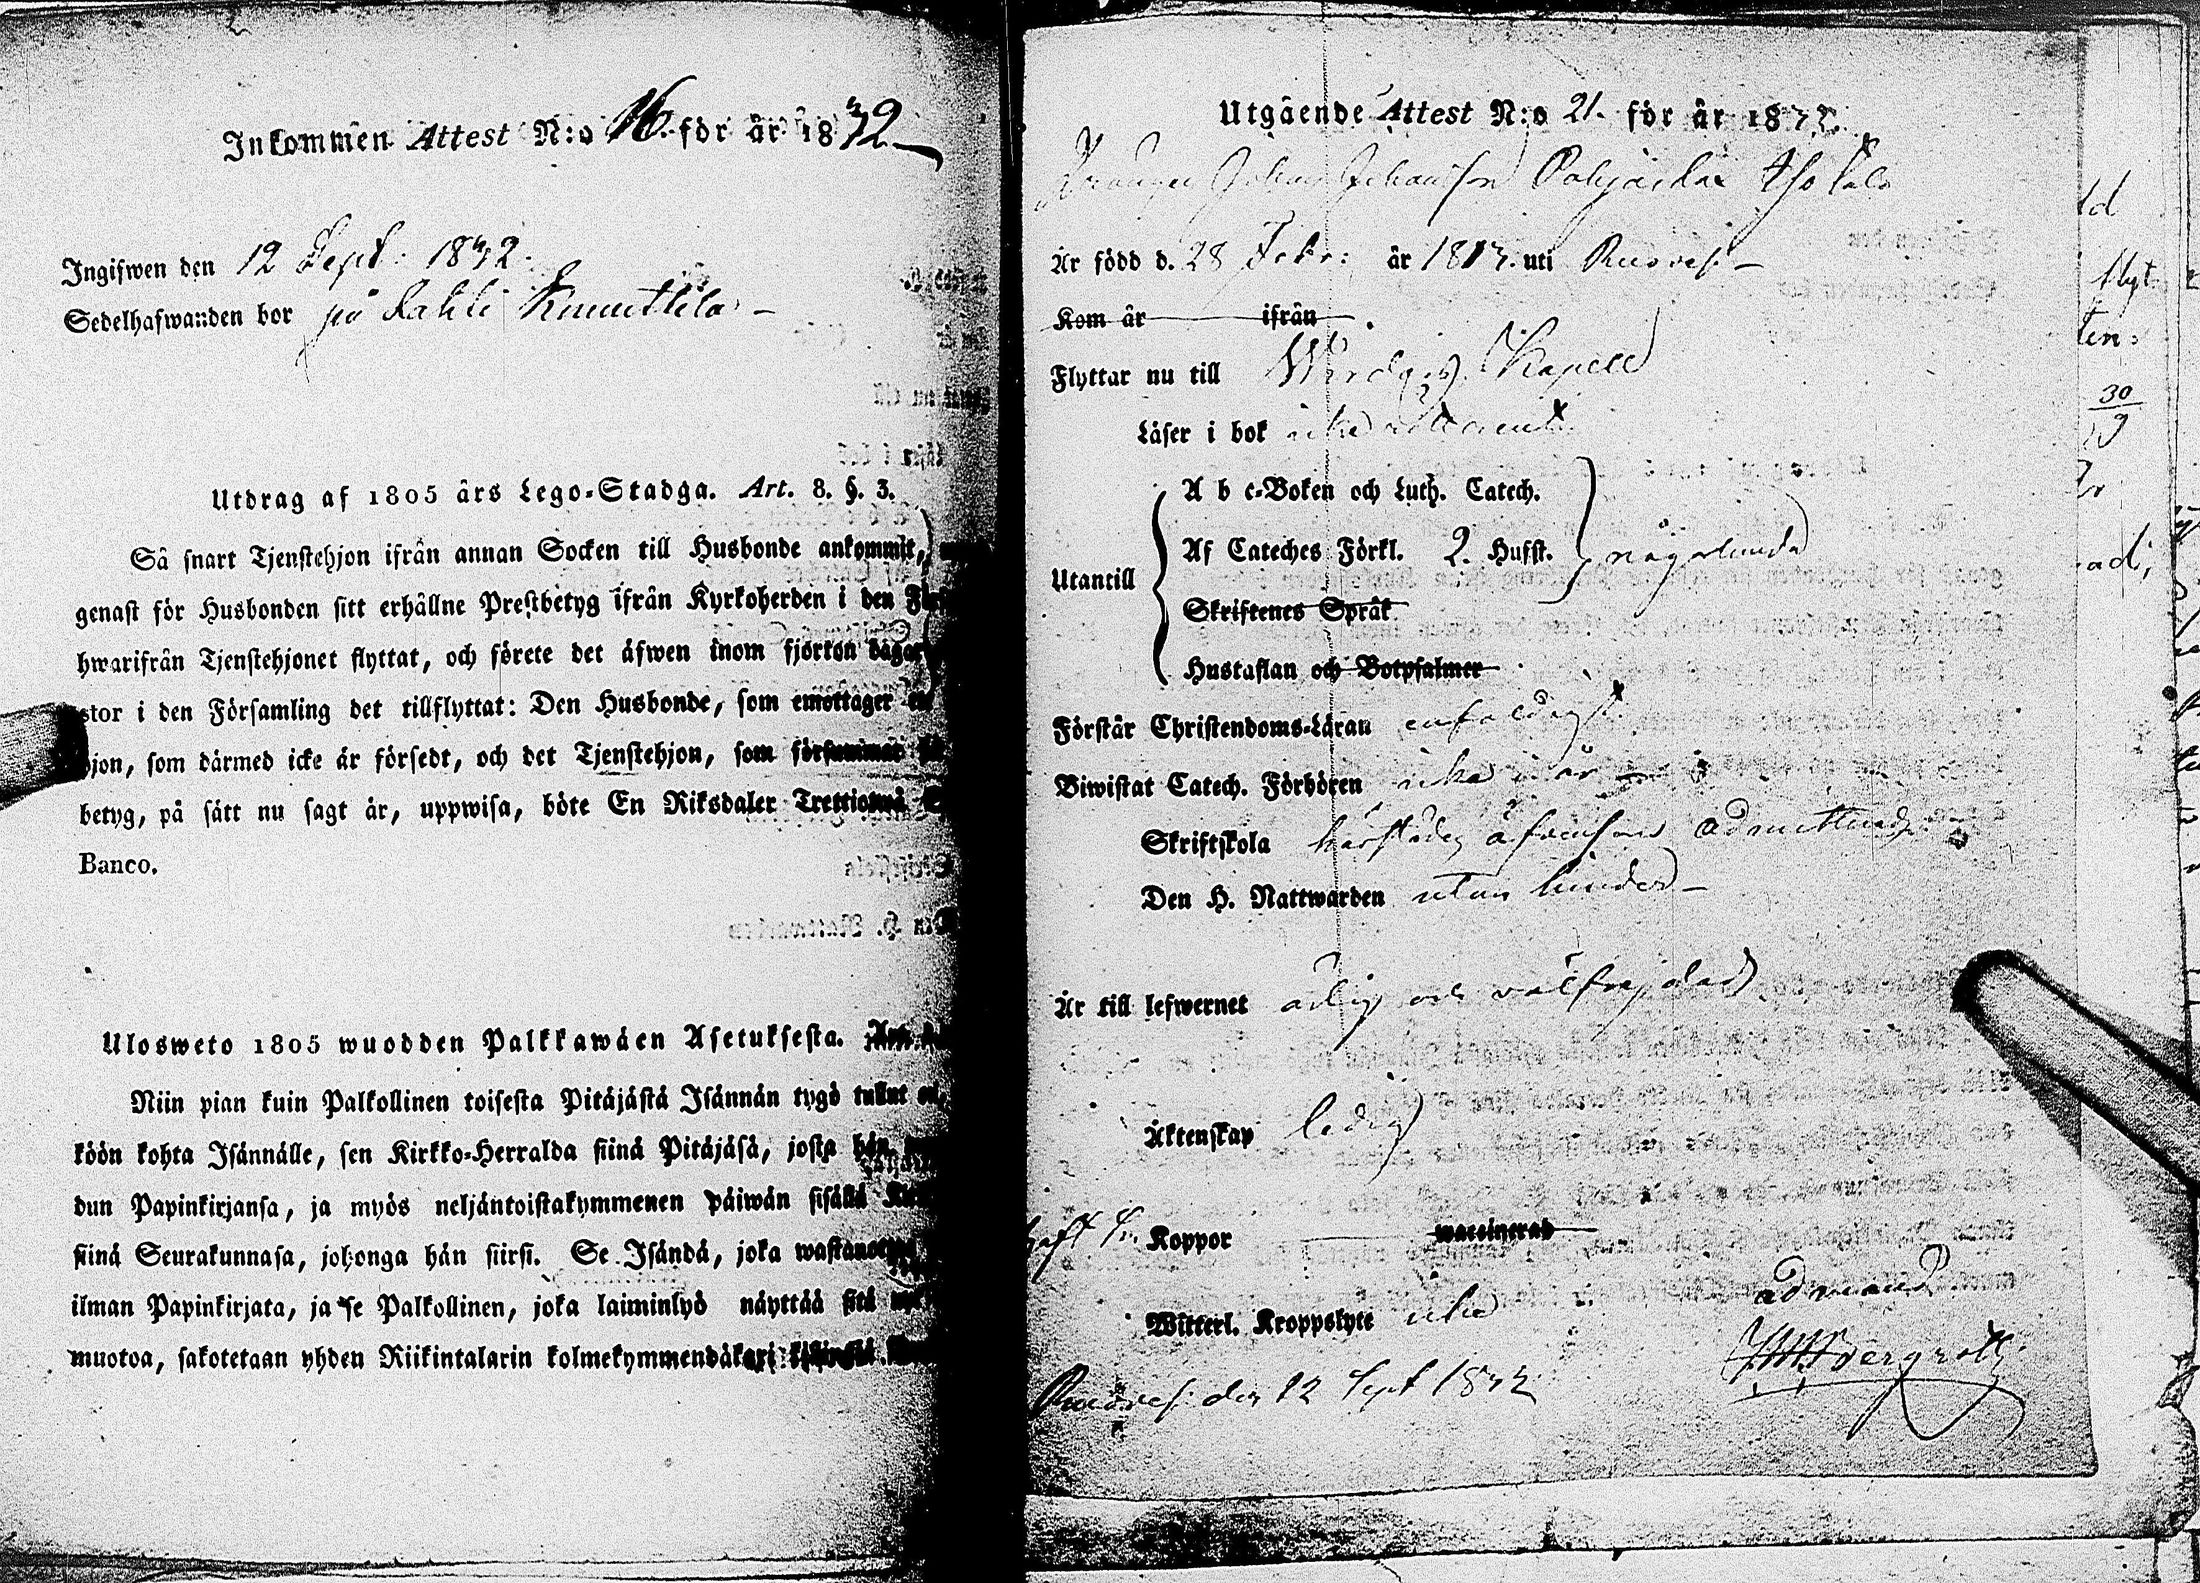 Inkommen Attest N:o 16. för år 1832
Ingifwen den 12 Sept: 1832.
Sedelhafwanden bor på Lahti Knuuttila
Utdrag af 1805 års Lego-Stadga. Art. 8. §. 3.
Så snart Tjenstehjon ifrån annan Socken till Husbonde ankommit,
genast för Husbonden sitt erhållne Prestbetyg ifrån Kyrkoherden i den
hwarifrån Tjenstehjonet flyttat, och förete det äfwen inom fjorton dagar
stor i den Församling det tillflyttat: Den Husbonde, som emottager
hjon, som därmed icke är försedt, och det Tjenstehjon, som försummar
betyg, på sätt nu sagt är, uppwisa, böte En Riksdaler Trettiotwå
Banco.
Ulosweto 1805 wuodden Palkkawäen Asetuksesta. Art.
Niin pian kuin Palkollinen toisesta Pitäjästä Isännän tygö tullut on,
köön kohta Isännälle, sen Kirkko-Herralda siinä Pitäjäsä, josta hän
dun Papinkirjansa, ja myös neljäntoistakymmenen päiwän sisällä
siinä Seurakunnasa, johonga hän siirsi. Se Isändä, joka
ilman Papinkirjata, ja se Palkollinen, joka laiminlyö näyttää sitä
muotoa, sakotetaan yhden Riikintalarin kolmekymmendäkaxi
Utgående Attest N:o 21. för år 1832.
Drängen Johan Johansson
Är född d. 28 Febr: år 1813. uti Ruoves.
Kom år ifrån
Flyttar nu till Wirdois Kapell
Läser i bok
A b c-Boken och Luth. Catech.
Af Cateches Förkl. 2. Hufst. någorlunda
Utantill
Skriftenes Språk
Hustaflan och Botpsalmer
Förstår Christendoms-Läran enfaldigt
Biwistat Catech. Förhören icke i år
Skriftskola härstädes admitterad
Den H. Nattwarden utan hinder
Är till lefwernet ärlig och välfrejdad
Äktenskap ledig
haft Koppor waccinerad
Witterl. Kroppslyte icke
Ruoves. den 12 Sept 1832
30
9